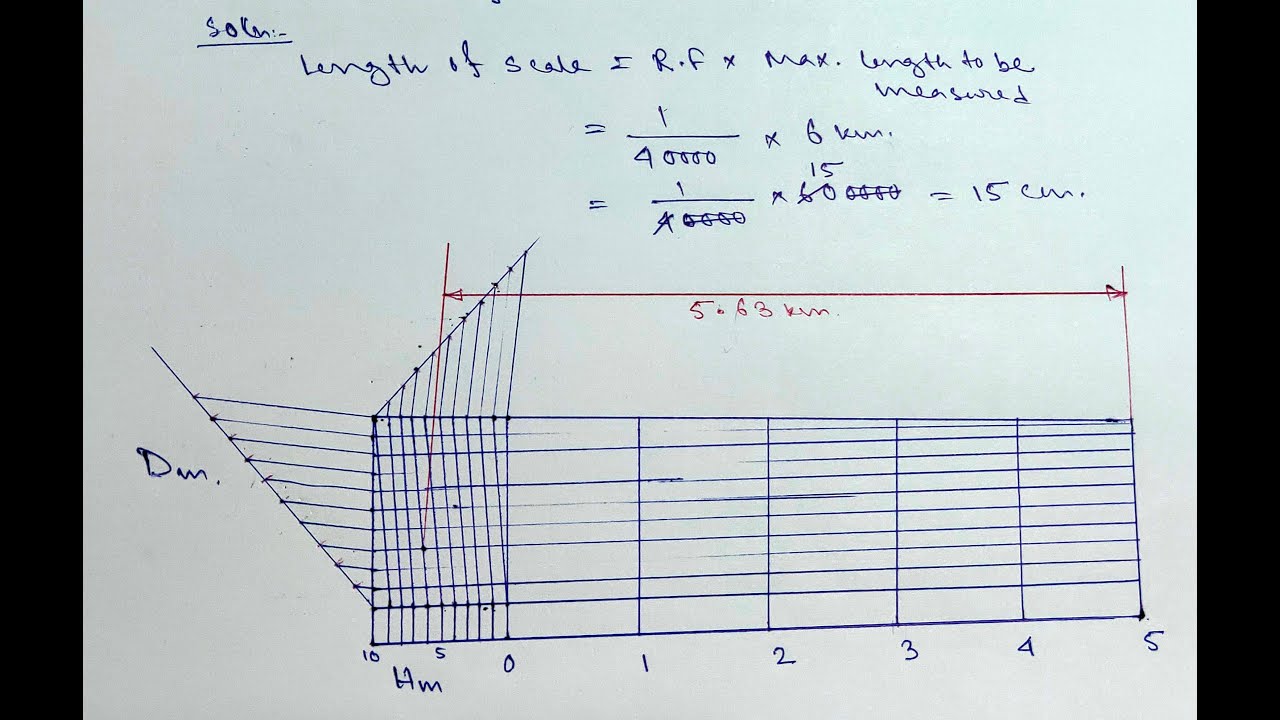 Soln:-
Length of scale = R.F × Max. length to be
measured
= 1/40000 × 6 km.
15
= 1/40000 × 600000 = 15 cm.
5.63 km.
Dm.
10 5 0 1 2 3 4 5
Hm